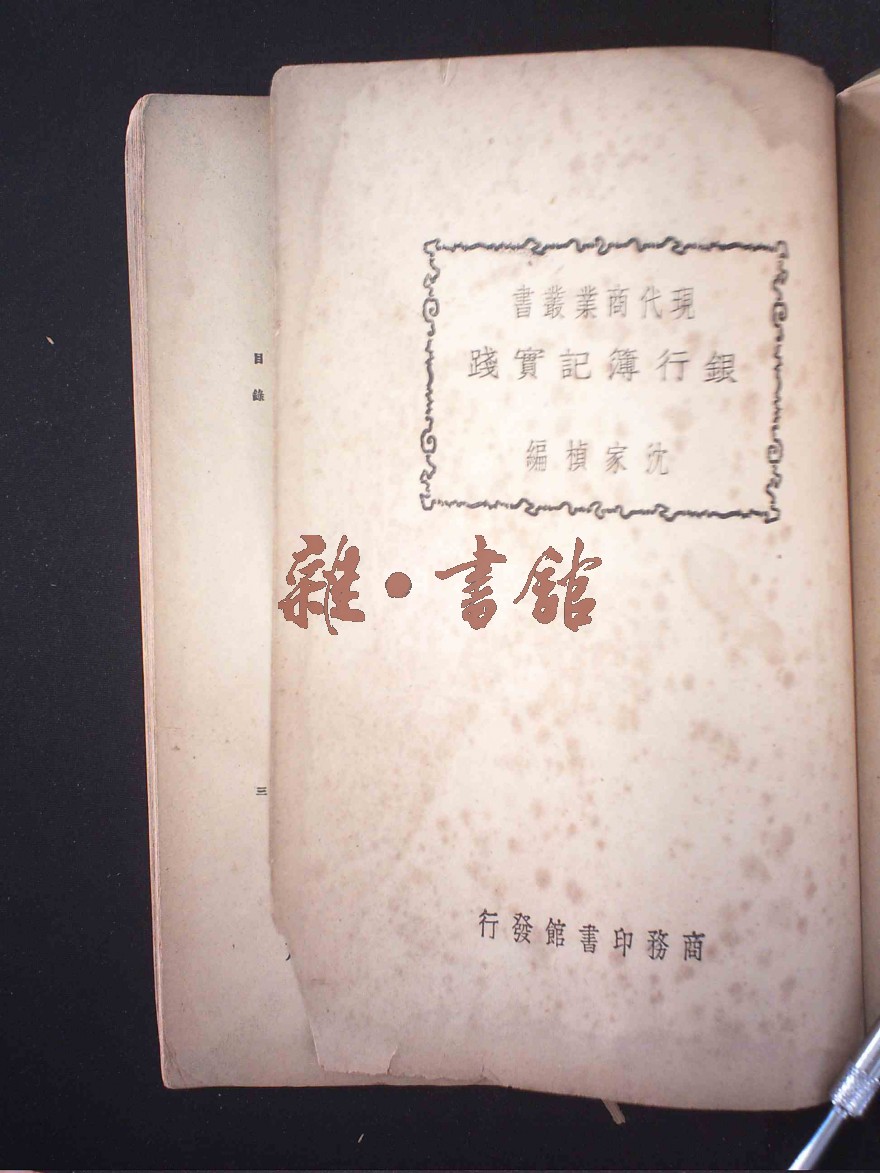 現代商業叢書
銀行簿記實踐
沈家楨編
商務印書館發行
雜·書館
目錄
三